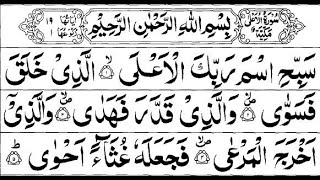 سُوْرَةُ الْاَعْلٰی مَكِّيَّةٌ
بِسْمِ اللهِ الرَّحْمٰنِ الرَّحِيْمِ
اٰيَاتُهَا ١٩ رُكُوْعُهَا ١
سَبِّحِ اسْمَ رَبِّكَ الْاَعْلَى ۙ الَّذِىْ خَلَقَ
فَسَوّٰى ۪ۙ وَالَّذِىْ قَدَّرَ فَهَدٰى ۪ۙ وَالَّذِىْۤ
اَخْرَجَ الْمَرْعٰى ۪ۙ فَجَعَلَهٗ غُثَآءً اَحْوٰى ؕ